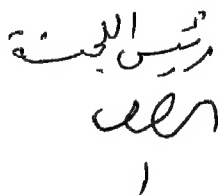 رئيس اللجنة